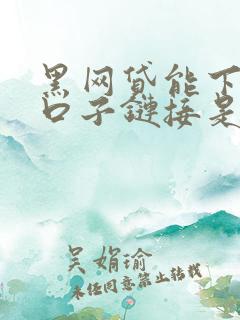 黑网贷能下
口子链接是
吴娟瑜
未经同意禁止转载